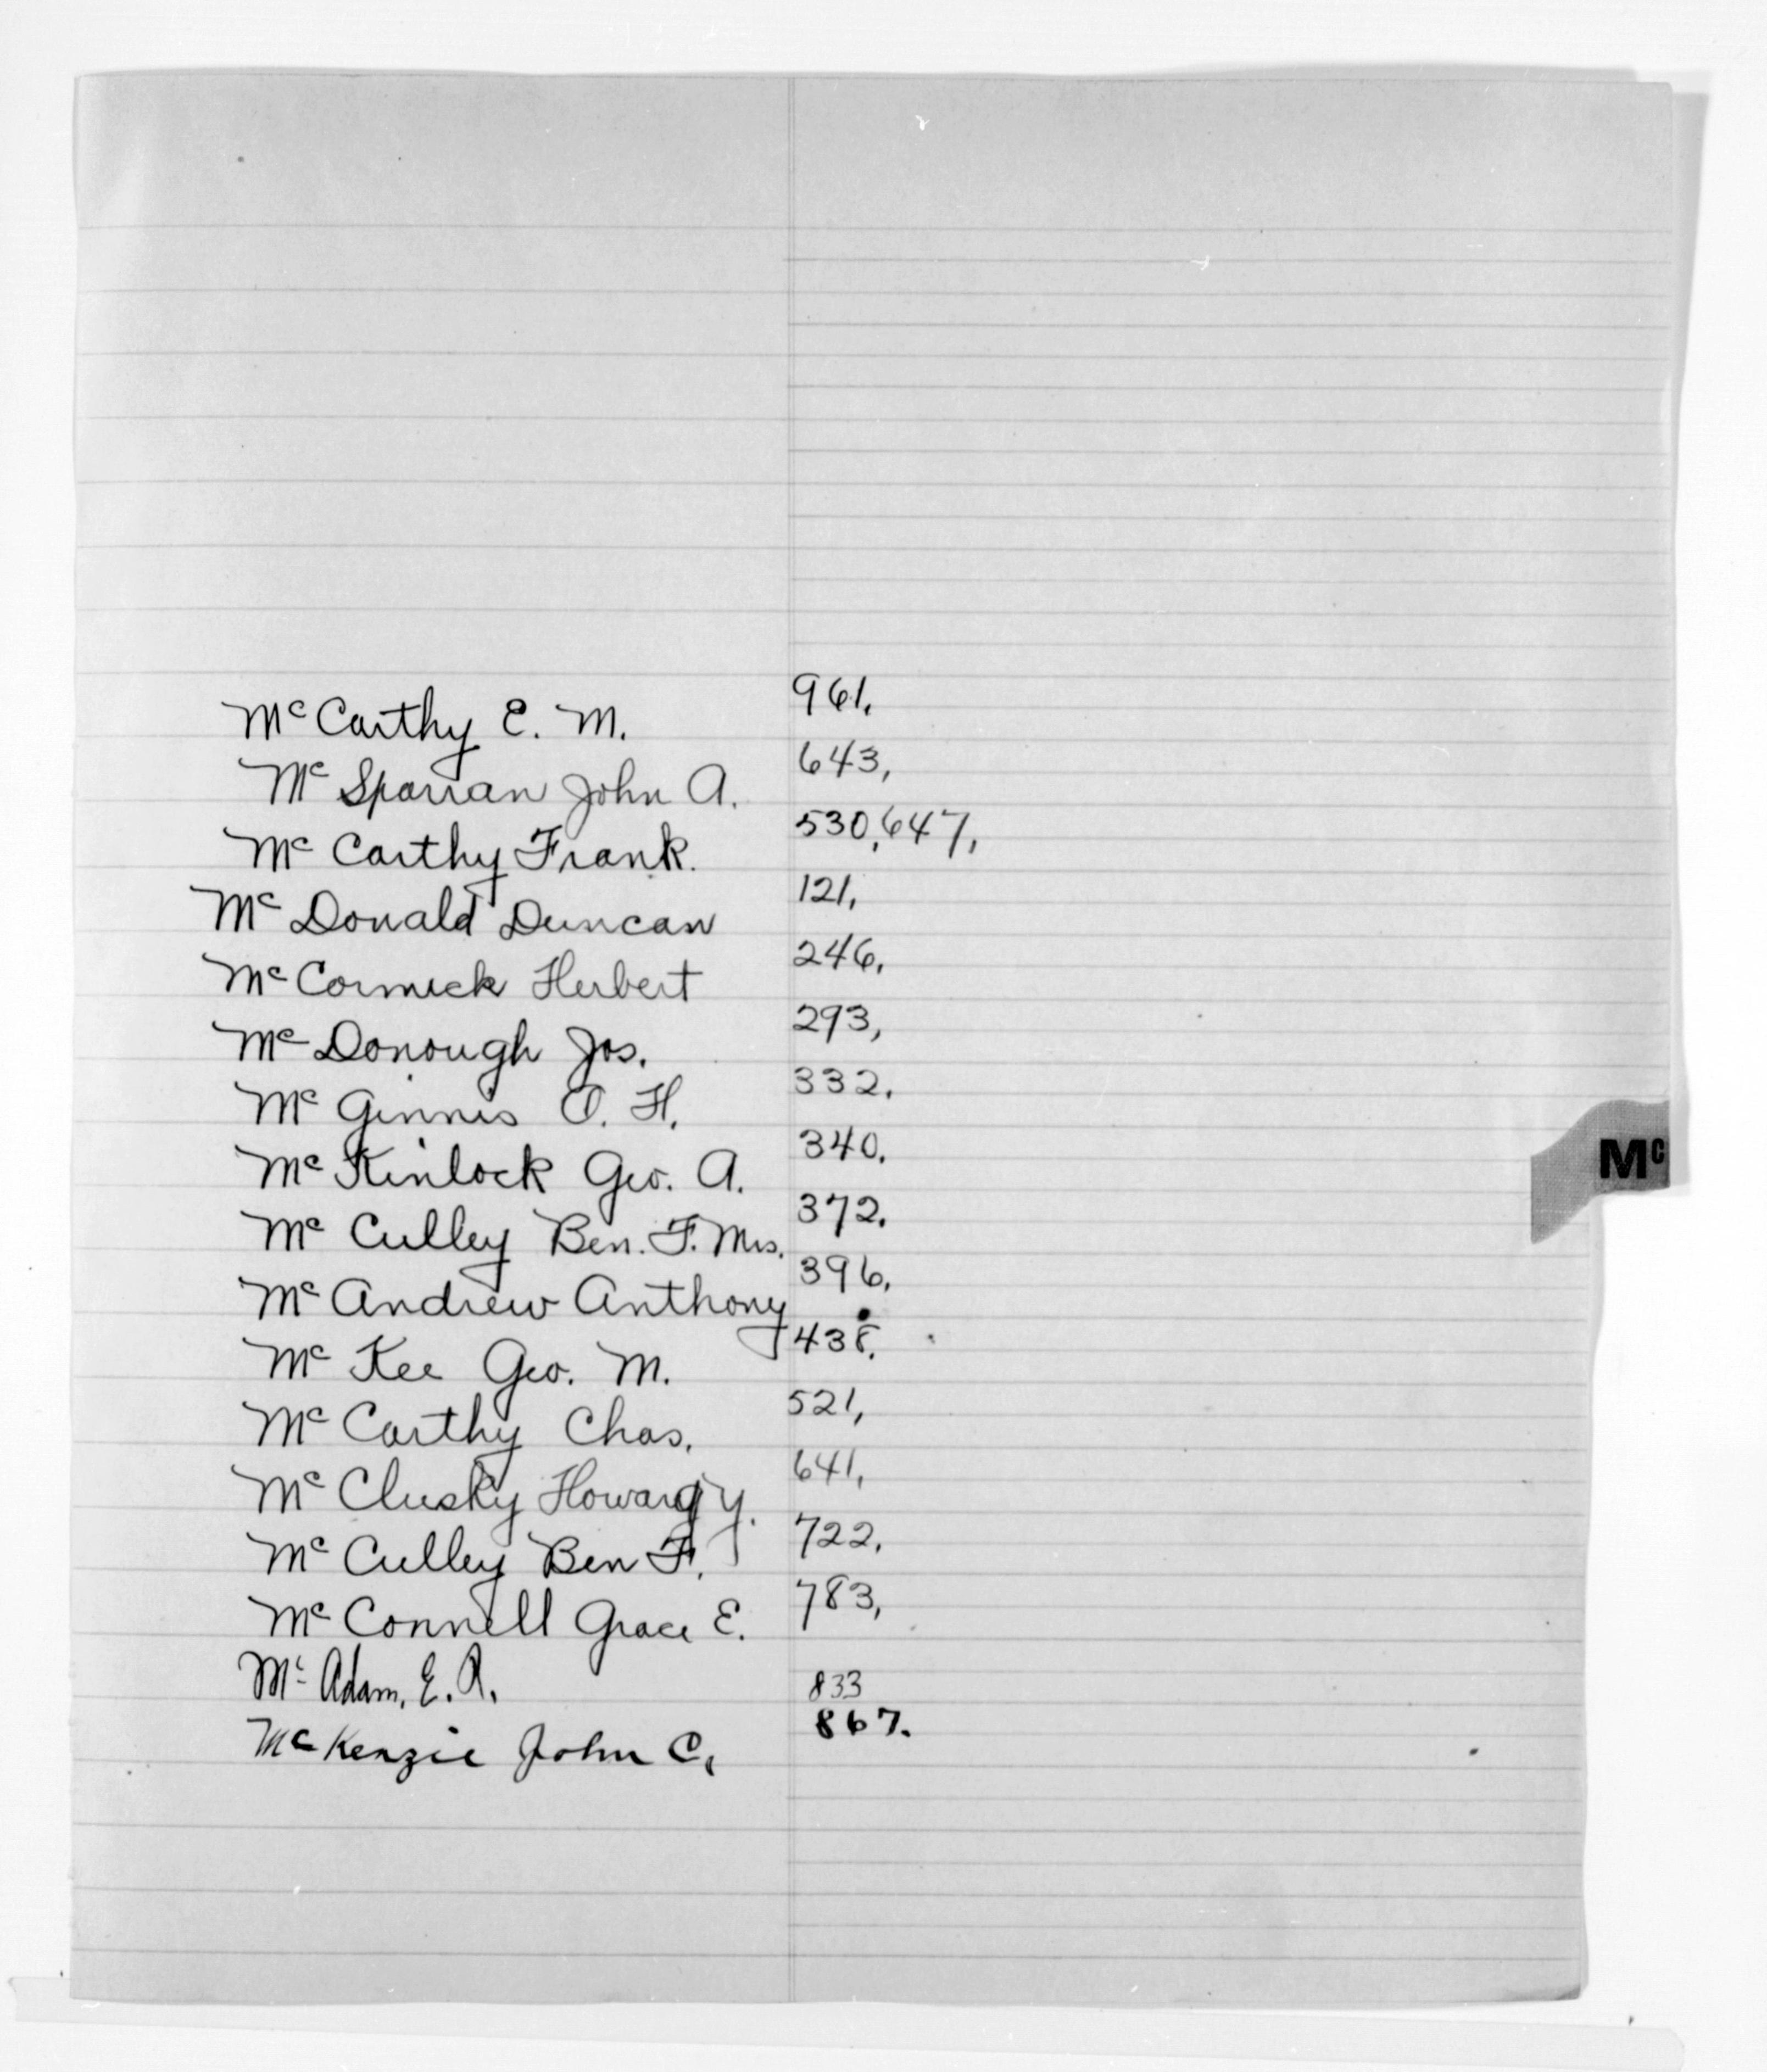 McCarthy E. M. 961.
McSparran John A. 643,
McCarthy Frank. 530,647,
McDonald Duncan 121,
McCormick Herbert 246.
McDonough Jos. 293,
McGinnis O. H. 332.
McKinlock Geo. A. 340.
McCulley Ben. F. Mrs. 372.
McAndrew Anthony 396.
McKee Geo. M. 438.
McCarthy Chas. 521,
McClusky Howard Y. 641,
McCulley Ben F. 722,
McConnell Grace E. 783,
McAdam, E. R. 833
McKenzie John C. 867.
Mc